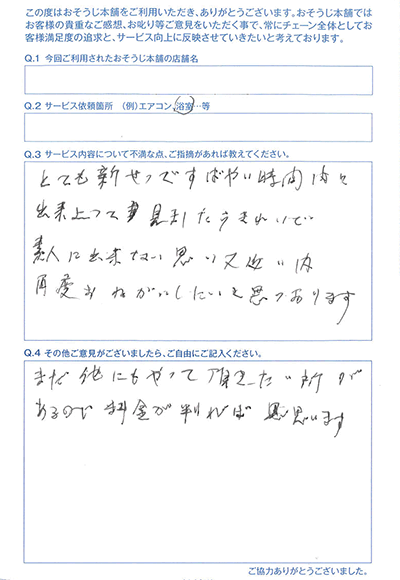 この度はおそうじ本舗をご利用いただき、ありがとうございます。おそうじ本舗では
お客様の貴重なご感想、お叱り等ご意見をいただく事で、常にチェーン全体としてお
客様満足度の追求と、サービス向上に反映させていきたいと考えております。
Q.1 今回ご利用されたおそうじ本舗の店舗名
Q.2 サービス依頼箇所 (例)エアコン、浴室…等
Q.3 サービス内容について不満な点、ご指摘があれば教えてください。
とても新せつですばやい時間内に
出来上って見ました
素人に出来ない思い又近い内
再度おねがいしたいと思つあります
Q.4 その他ご意見がございましたら、ご自由にご記入ください。
まだ他にもやって頂きたい所が
あるので料金が判れば思います
ご協力ありがとうございました。